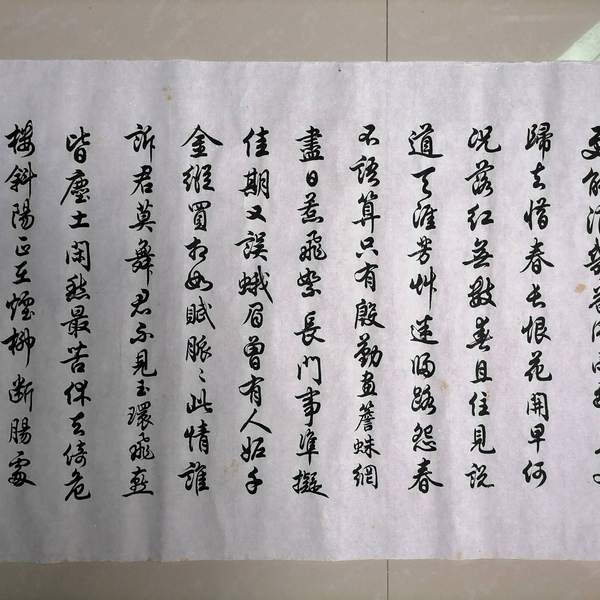 更能消幾番風雨
歸去惜春長恨花開早何
況落紅無數春且住見說
道天涯芳艸迷歸路怨春
不語算只有殷勤畫簷蛛網
盡日惹飛絮長門事準擬
佳期又誤蛾眉曾有人妬千
金縱買相如賦脈〻此情誰
訴君莫舞君不見玉環飛燕
皆塵土閑愁最苦休去倚危
樓斜陽正在煙柳斷腸處